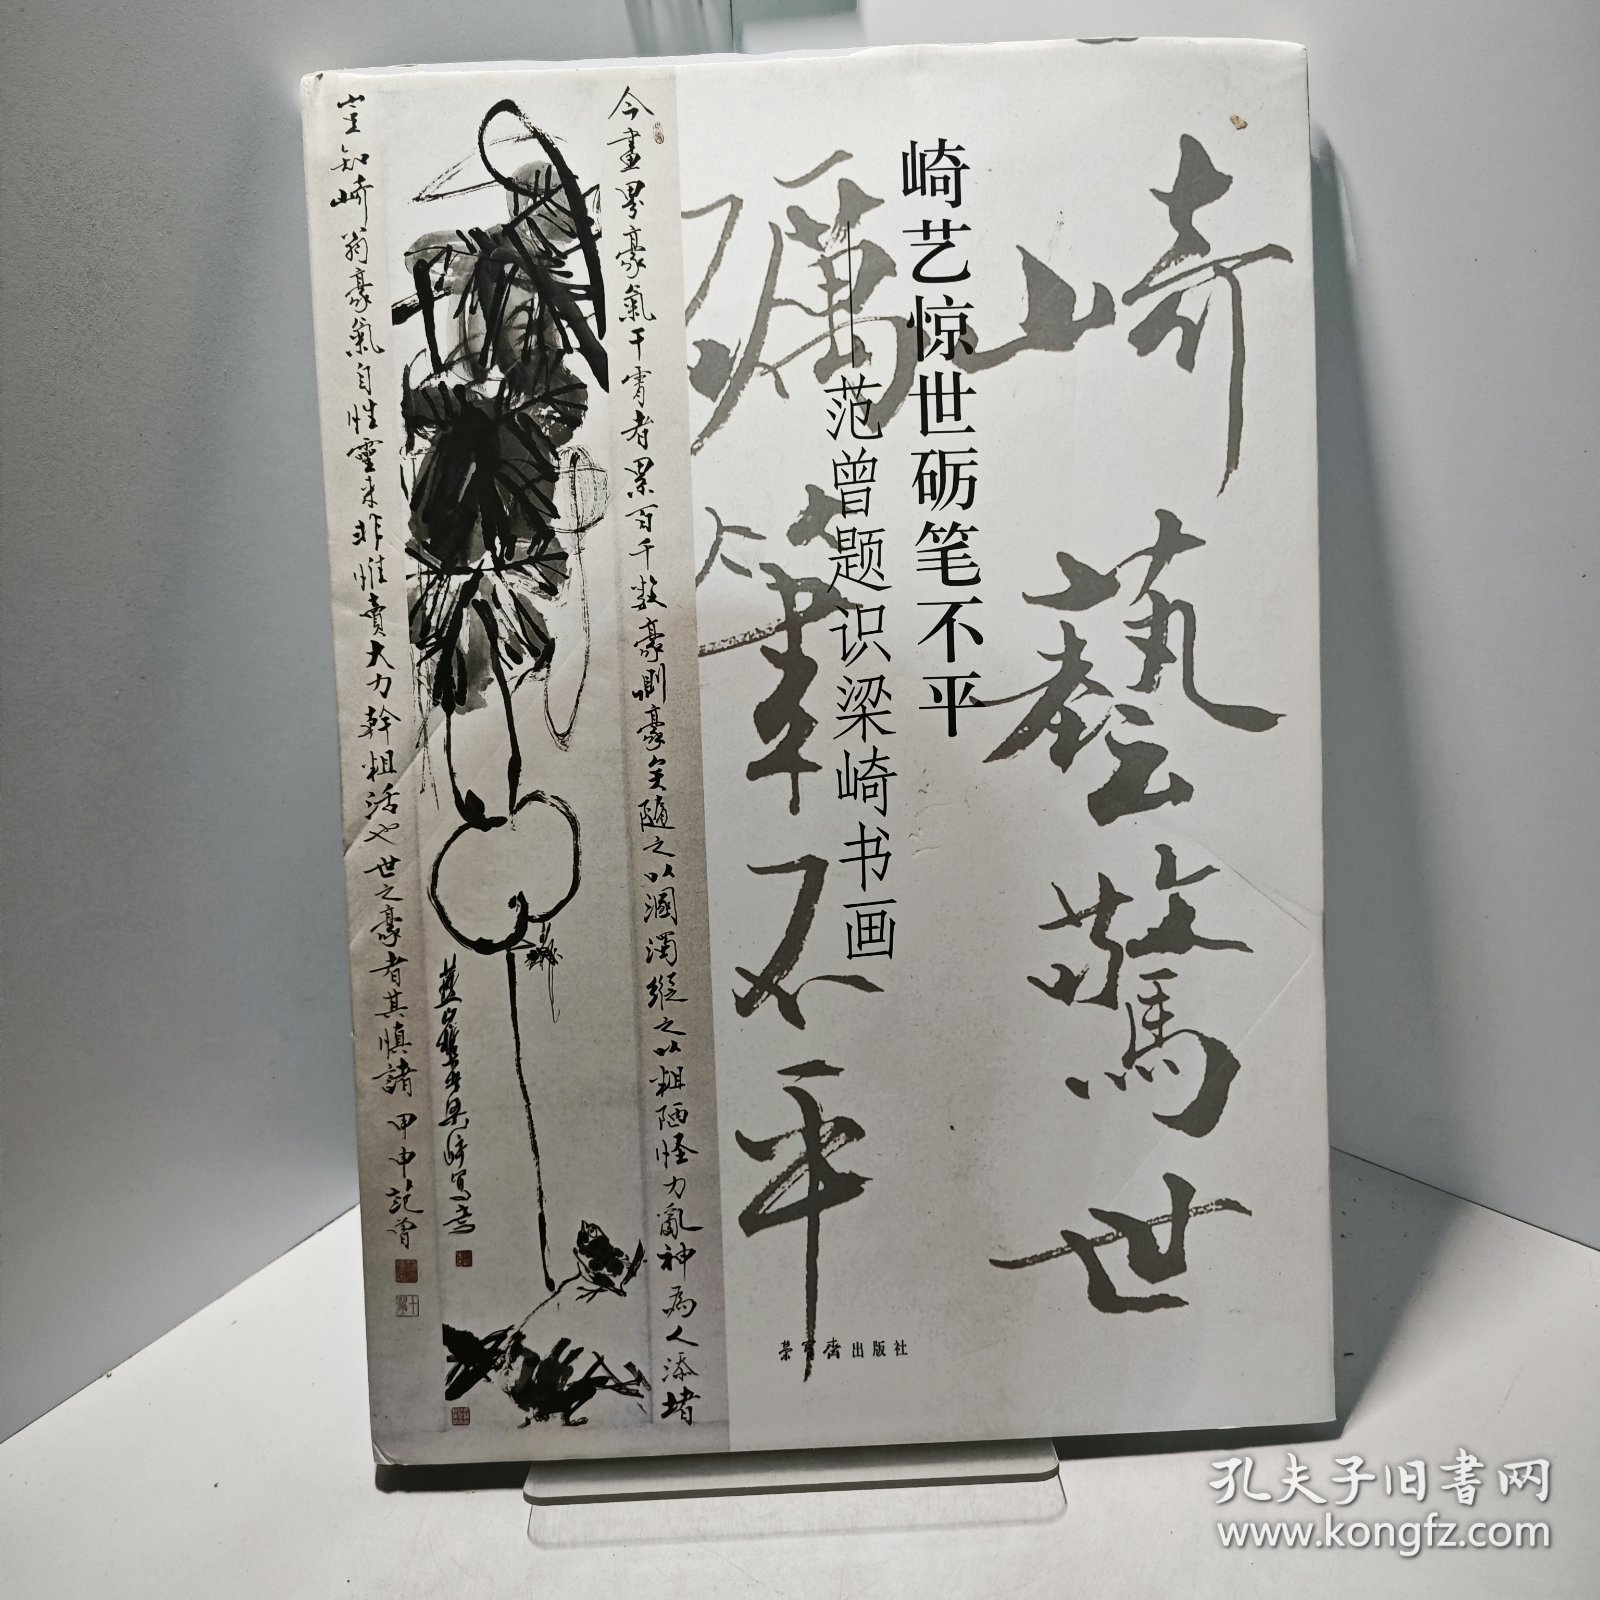 崎藝驚世
礪筆不平
崎艺惊世砺笔不平
——范曾题识梁崎书画
荣宝斋出版社
今畫界豪氣干霄者累百千数豪則豪矣随之以溷濁縱之以粗陋怪力亂神為人添堵
豈知崎翁豪氣自性靈来非惟賣大力幹粗活也世之豪者其慎諸 甲申 范曾
梁崎寫意
孔夫子旧书网
www.kongfz.com